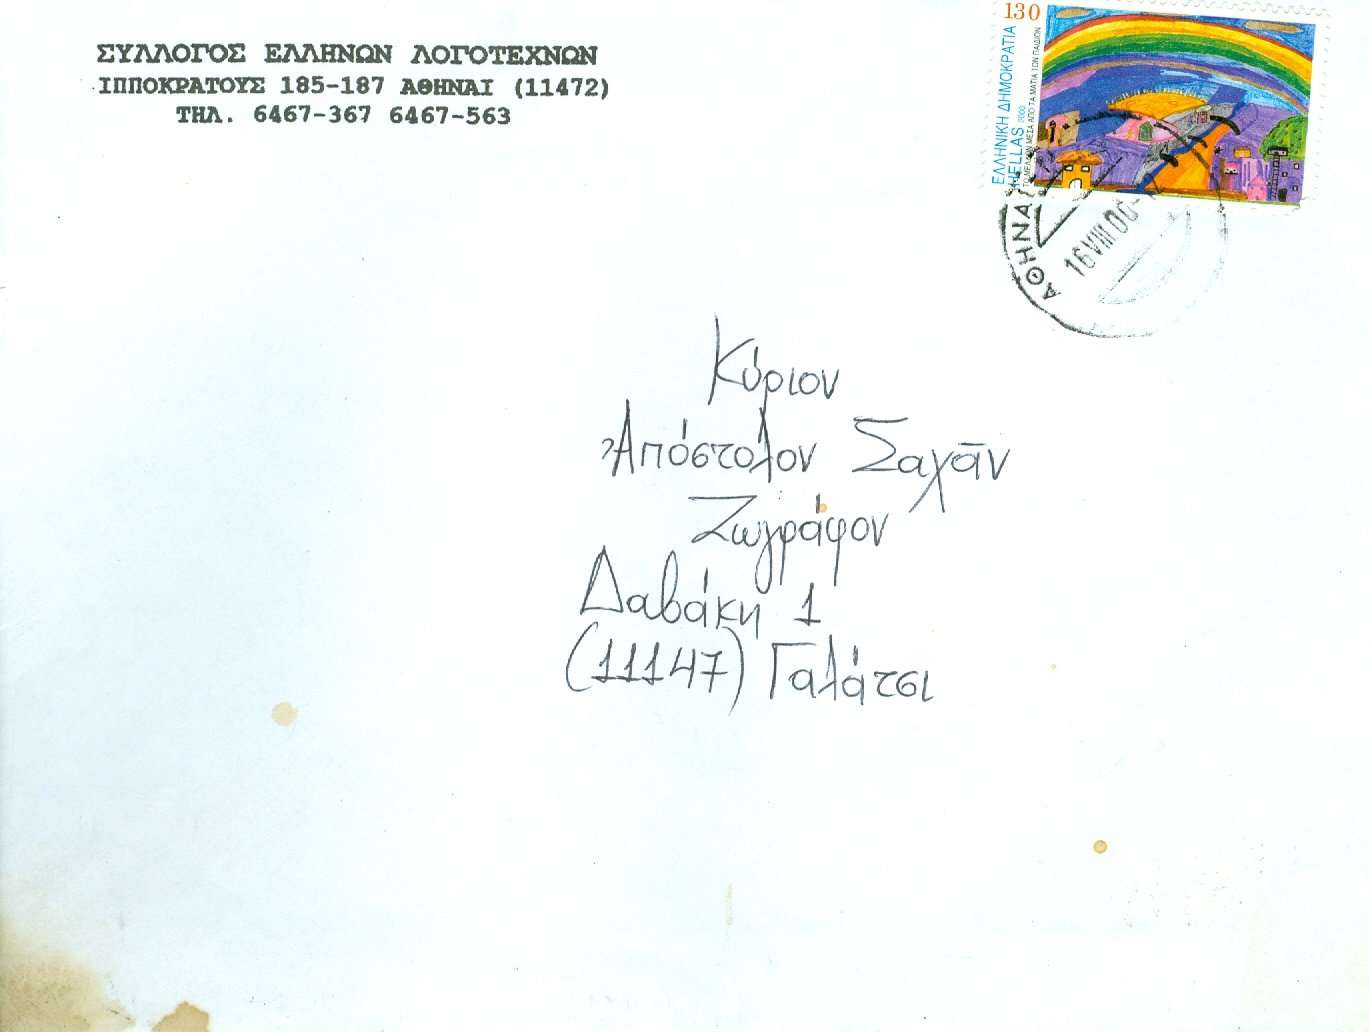 ΣΥΛΛΟΓΟΣ ΕΛΛΗΝΩΝ ΛΟΓΟΤΕΧΝΩΝ
ΙΠΠΟΚΡΑΤΟΥΣ 185-187 ΑΘΗΝΑΙ (11472)
ΤΗΛ. 6467-367 6467-563
130
ΕΛΛΗΝΙΚΗ ΔΗΜΟΚΡΑΤΙΑ
HELLAS 2000
ΤΟ ΜΕΛΛΟΝ ΜΕΣΑ ΑΠΟ ΤΑ ΜΑΤΙΑ ΤΩΝ ΠΑΙΔΙΩΝ
ΑΘΗΝΑ
16 VIII.00
Κύριον
Ἀπόστολον Σαχᾶν
Ζωγράφον
Δαβάκη 1
(11147) Γαλάτσι